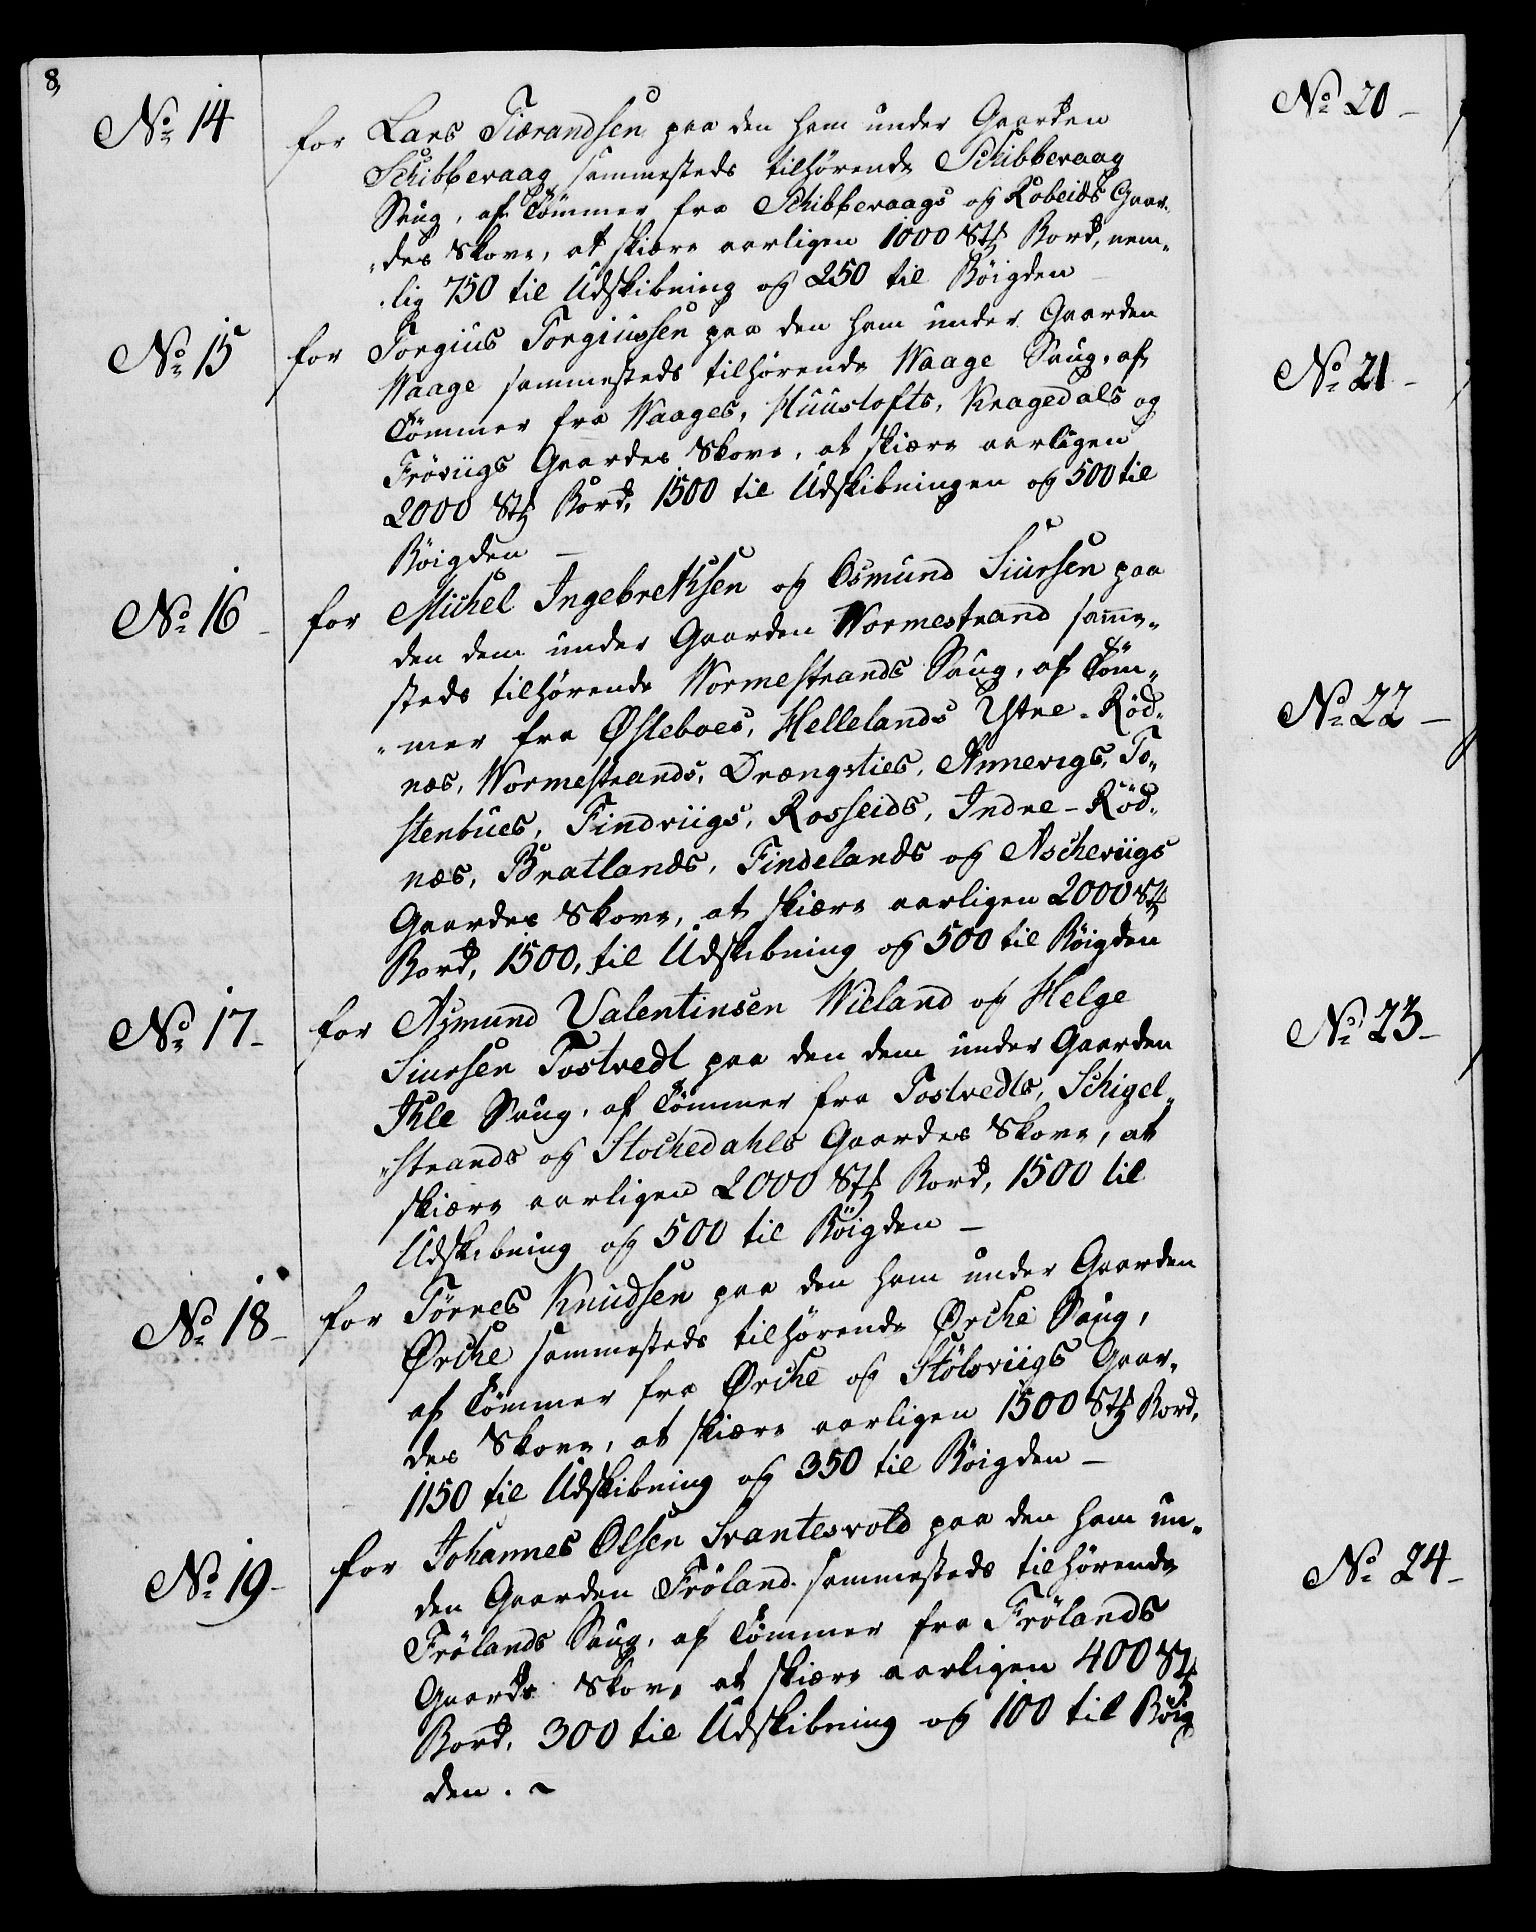 8,
No 14
for Lars Tiærandsen paa den ham under Gaarden
Schibbevaag sammesteds tilhørende Schibbevaag
Saug, af Tømmer fra Schibbevaags og Robeids Gaar„
„des Skove, at skiære aarligen 1000 Stk Bord, nem„
„lig 750 til Udskibning og 250 til Böigden
No 15
for Torgius Torgiussen paa den ham under Gaarden
Waage sammesteds tilhørende Waage Saug, af
Tømmer fra Waages, Huuslofts, Kragedals og
Fröviigs Gaardes Skove, at skiære aarligen
2000 Stk Bord, 1500 til Udskibningen og 500 til
Böigden –
No 16 –
for Michel Ingebrethsen og Osmund Siursen paa
den dem under Gaarden Wormestrand samme„
steds tilhørende Wormestrands Saug, af Töm„
„mer fra Øsleboes, Hellelands Ytre-Röd„
næs, Wormestrands, Drængsties, Annevigs, To„
stenbues, Findviigs, Rosseids, Indre-Röd„
næs, Bratlands, Findelands og Ascheviigs
Gaardes Skove, at skiære aarligen 2000 Stk
Bord, 1500, til Udskibning og 500 til Böigden
No 17 –
for Asmund Valentinsen Wieland og Helge
Siursen Tostvedt paa den dem under Gaarden
Ihle Saug, af Tømmer fra Tostvedts, Schigel„
„strands og Stochedahls Gaardes Skove, at
skiære aarligen 2000 Stk Bord, 1500 til
Udskibning og 500 til Böigden –
No 18 –
for Törres Knudsen paa den ham under Gaarden
Ørche sammesteds tilhørende Ørche Saug,
af Tømmer fra Ørche og Stölsviigs Gaar„
des Skove, at skiære aarligen 1500 Stk Bord,
1150 til Udskibning og 350 til Böigden –
No 19 –
for Johannes Olsen Svantesvold paa den ham un„
den Gaarden Fröland sammesteds tilhørende
Frölands Saug, af Tømmer fra Frölands
Gaards Skov, at skiære aarligen 400 Stk
Bord, 300 til Udskibning og 100 til Böig
den. ~
No 20 –
No 21 –
No 22 –
No 23 –
No 24 –